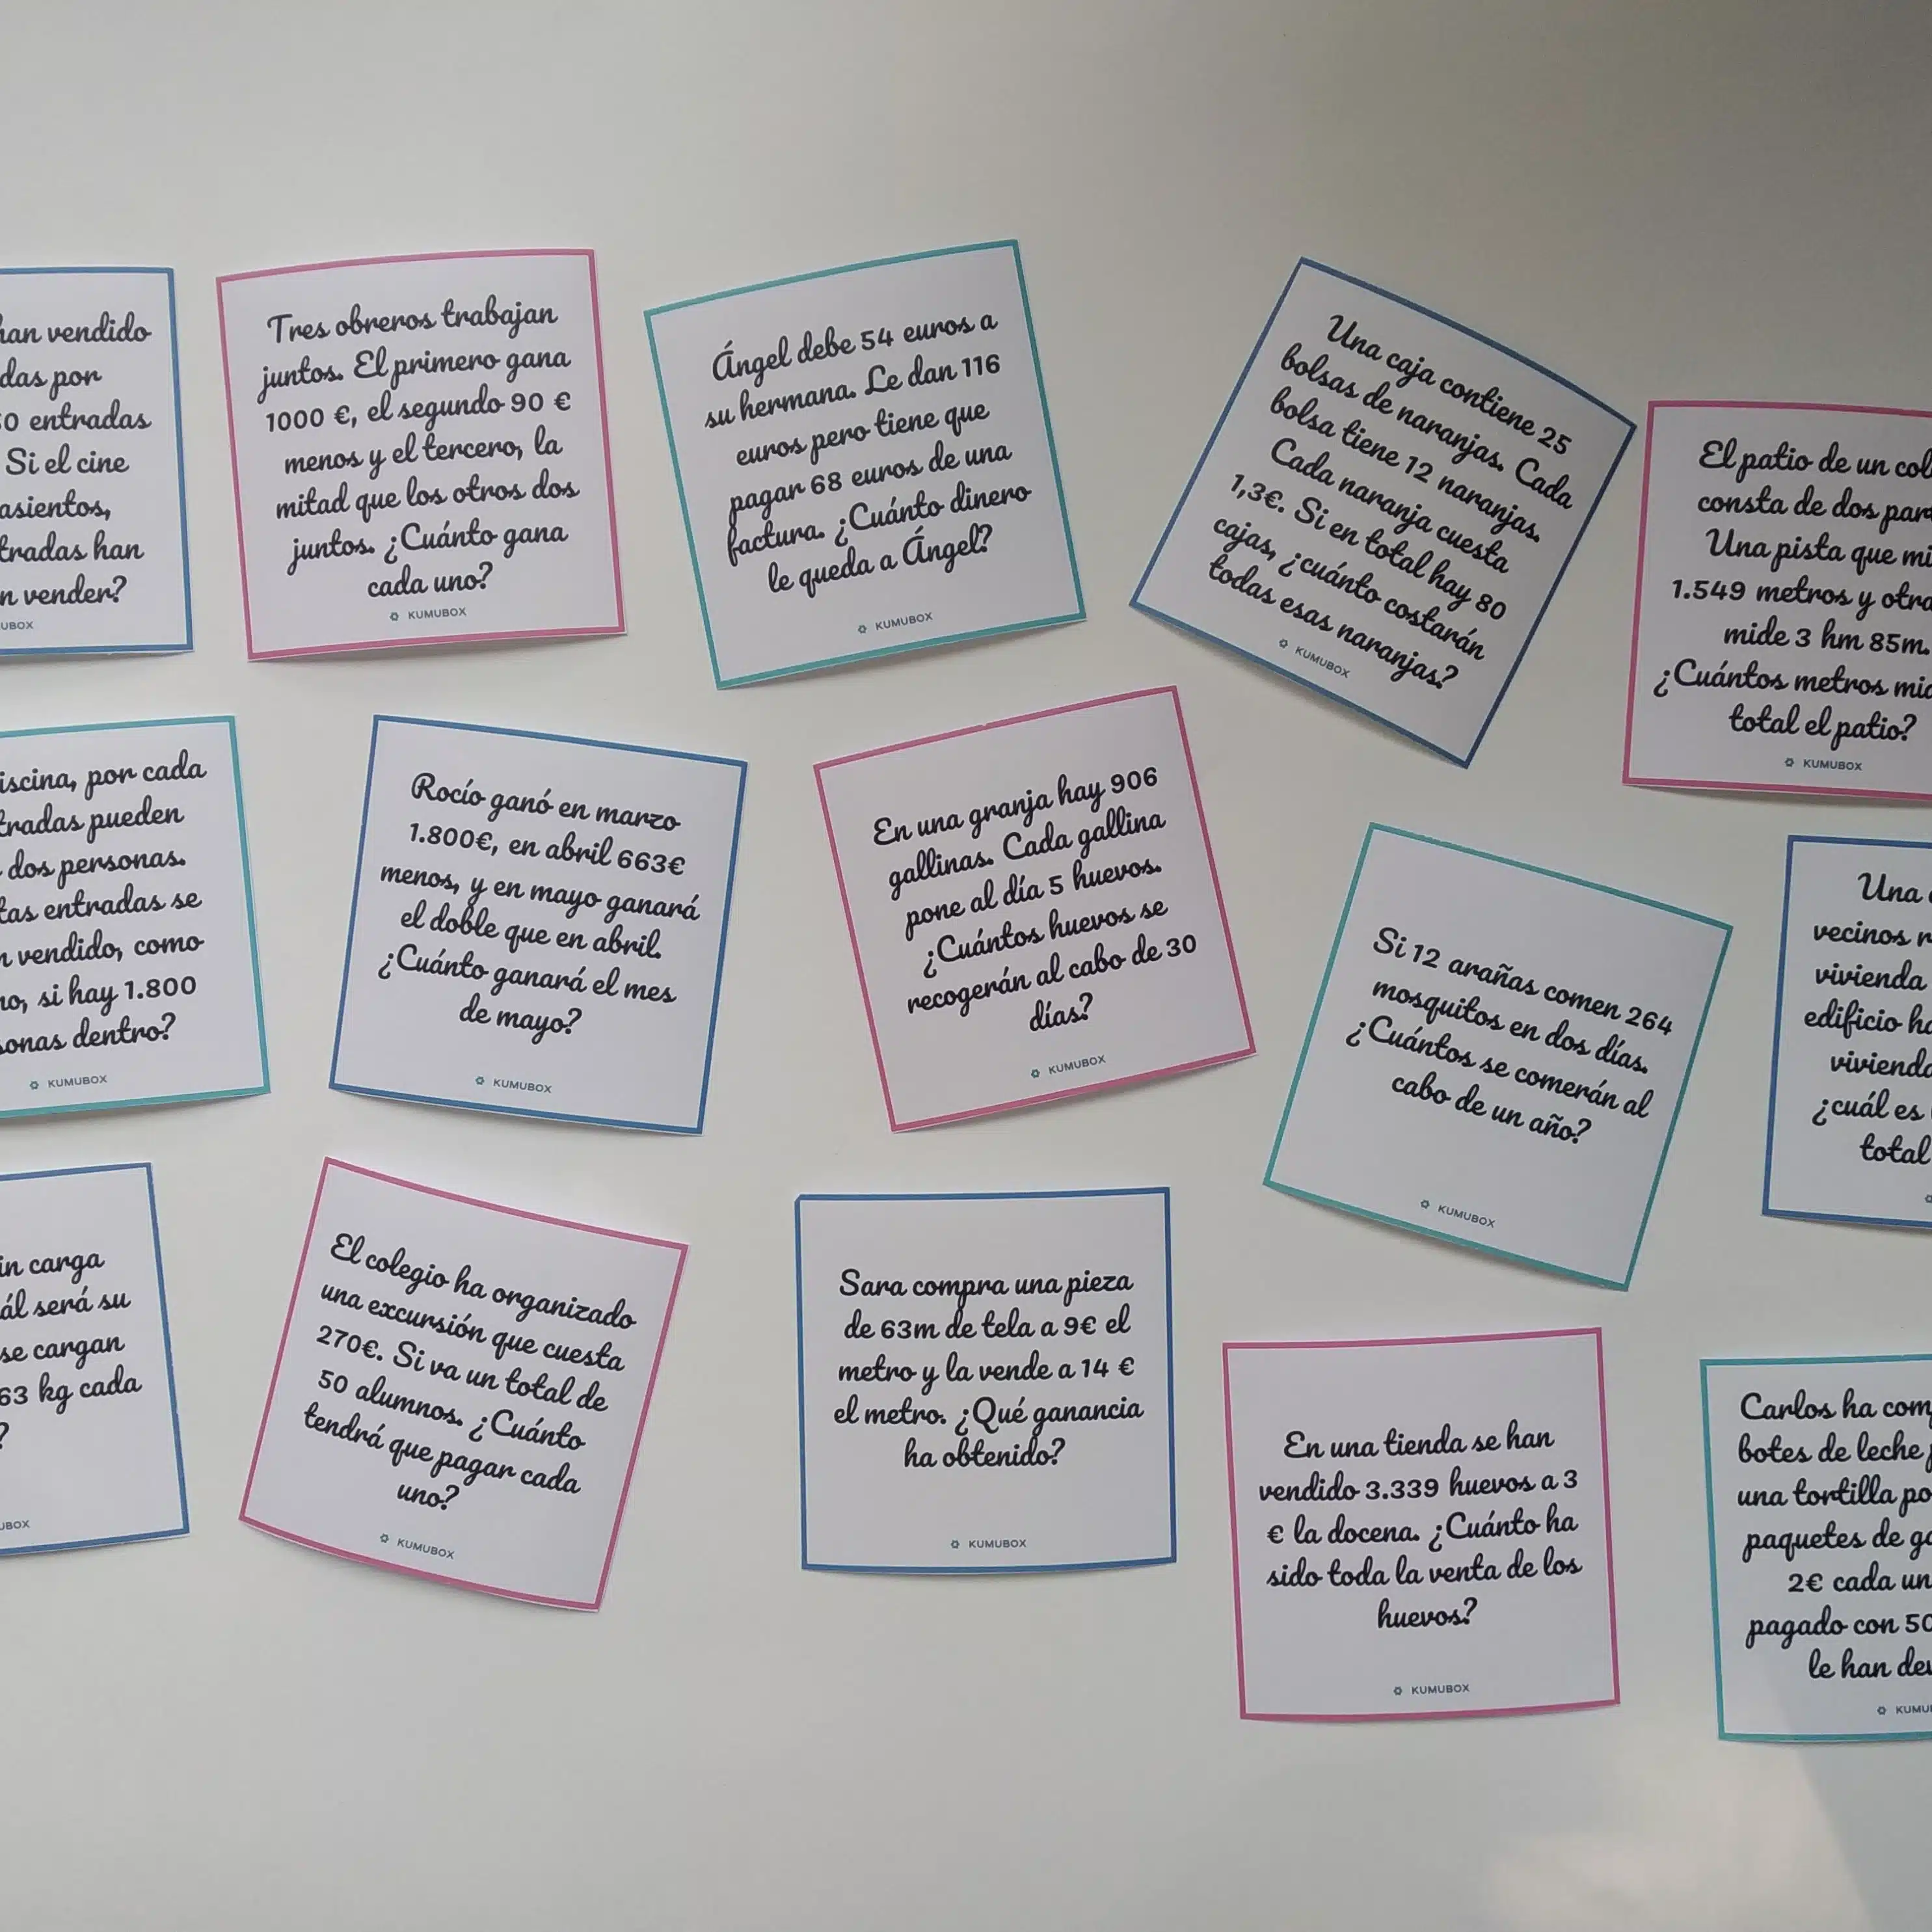 han vendido
das por
0 entradas
Si el cine
asientos,
tradas han
n vender?
UBOX
Tres obreros trabajan
juntos. El primero gana
1000 €, el segundo 90 €
menos y el tercero, la
mitad que los otros dos
juntos. ¿Cuánto gana
cada uno?
KUMUBOX
Ángel debe 54 euros a
su hermana. Le dan 116
euros pero tiene que
pagar 68 euros de una
factura. ¿Cuánto dinero
le queda a Ángel?
KUMUBOX
Una caja contiene 25
bolsas de naranjas. Cada
bolsa tiene 12 naranjas.
Cada naranja cuesta
1,3€. Si en total hay 80
cajas, ¿cuánto costarán
todas esas naranjas?
KUMUBOX
El patio de un col
consta de dos par
Una pista que mi
1.549 metros y otra
mide 3 hm 85m.
¿Cuántos metros mid
total el patio?
KUMUBOX
iscina, por cada
tradas pueden
dos personas.
tas entradas se
n vendido, como
no, si hay 1.800
sonas dentro?
KUMUBOX
Rocío ganó en marzo
1.800€, en abril 663€
menos, y en mayo ganará
el doble que en abril.
¿Cuánto ganará el mes
de mayo?
KUMUBOX
En una granja hay 906
gallinas. Cada gallina
pone al día 5 huevos.
¿Cuántos huevos se
recogerán al cabo de 30
días?
KUMUBOX
Si 12 arañas comen 264
mosquitos en dos días.
¿Cuántos se comerán al
cabo de un año?
KUMUBOX
Una
vecinos r
vivienda
edificio ha
vivienda
¿cuál es
total
in carga
ál será su
se cargan
63 kg cada
?
UBOX
El colegio ha organizado
una excursión que cuesta
270€. Si va un total de
50 alumnos. ¿Cuánto
tendrá que pagar cada
uno?
KUMUBOX
Sara compra una pieza
de 63m de tela a 9€ el
metro y la vende a 14 €
el metro. ¿Qué ganancia
ha obtenido?
KUMUBOX
En una tienda se han
vendido 3.339 huevos a 3
€ la docena. ¿Cuánto ha
sido toda la venta de los
huevos?
KUMUBOX
Carlos ha com
botes de leche
una tortilla po
paquetes de ga
2€ cada un
pagado con 50
le han dev
KUMU